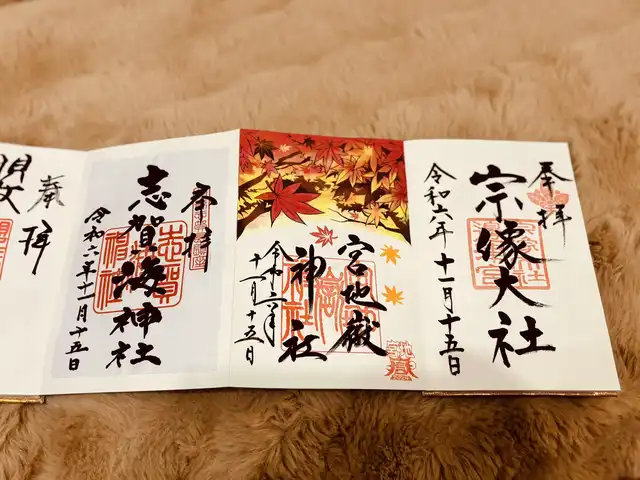 奉拝
宗像大社
令和六年十一月十五日
宮地嶽
神社
令和六年
十一月十五日
奉拝
志賀海神社
令和六年十一月十五日
奉拝